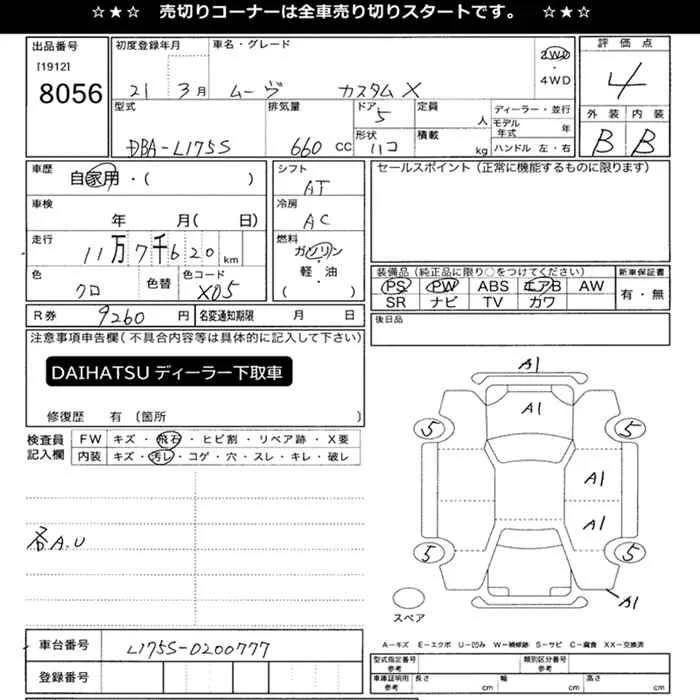 ☆★☆ 売切りコーナーは全車売り切りスタートです。 ☆★☆
出品番号
[1912]
8056
初度登録年月
21 3月
車名・グレード
ムーヴ カスタムX
2WD
・
4WD
評価点
4
外装 内装
B B
型式
DBA-L175S
排気量
660 CC
ドア
5
形状
ハコ
定員
人
積載
kg
ディーラー・並行
モデル年式 年
ハンドル 左・右
車歴
自家用・( )
車検
年 月( 日)
走行
11万7千620km
色
クロ
色替
色コード
X05
シフト
AT
冷房
AC
燃料
ガソリン
・
軽・油
( )
セールスポイント(正常に機能するものに限ります)
装備品(純正品に限り○をつけてください)
PS PW ABS エアB AW
SR ナビ TV カワ
新車保証書
有・無
後日品
R券 9260 円
名変通知期限 月 日
注意事項申告欄(不具合内容等は具体的に記入して下さい)
DAIHATSU ディーラー下取車
修復歴 有 (箇所 )
検査員
記入欄
FW キズ・飛石・ヒビ割・リペア跡・X要
内装 キズ・汚レ・コゲ・穴・スレ・キレ・破レ
各A.U
A1
A1
5 5
A1
A1
5 5
A1
スペア
A-キズ E-エクボ U-凹み W-補修跡 S-サビ C-腐食 XX-交換済
車台番号 L175S-0200777
登録番号
型式指定番号
参考
類別区分番号
参考
車庫証明用
参考
長さ cm
幅 cm
高さ cm